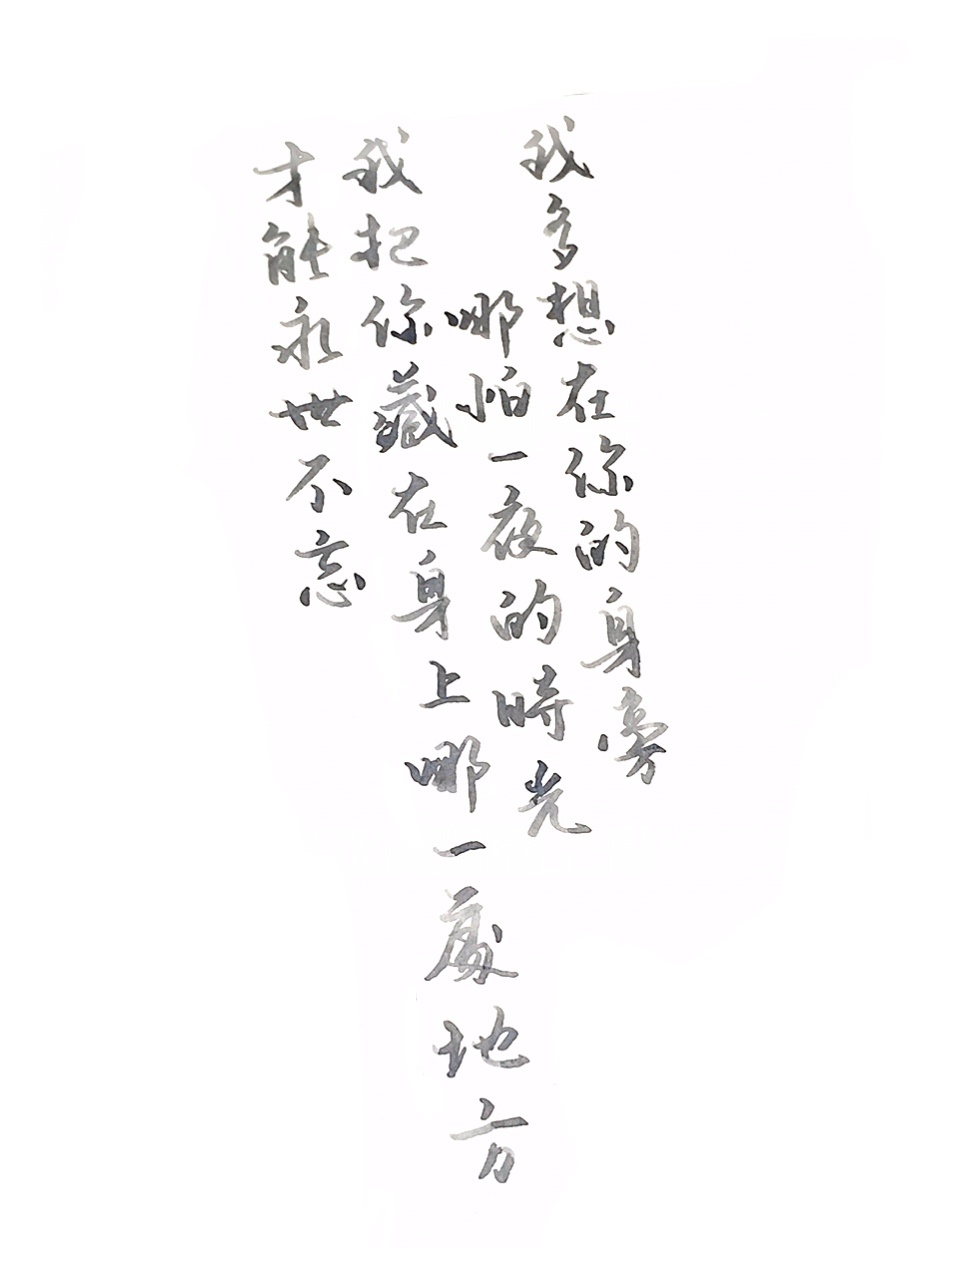 我多想在你的身旁
哪怕一夜的時光
我把你藏在身上哪一處地方
才能永世不忘